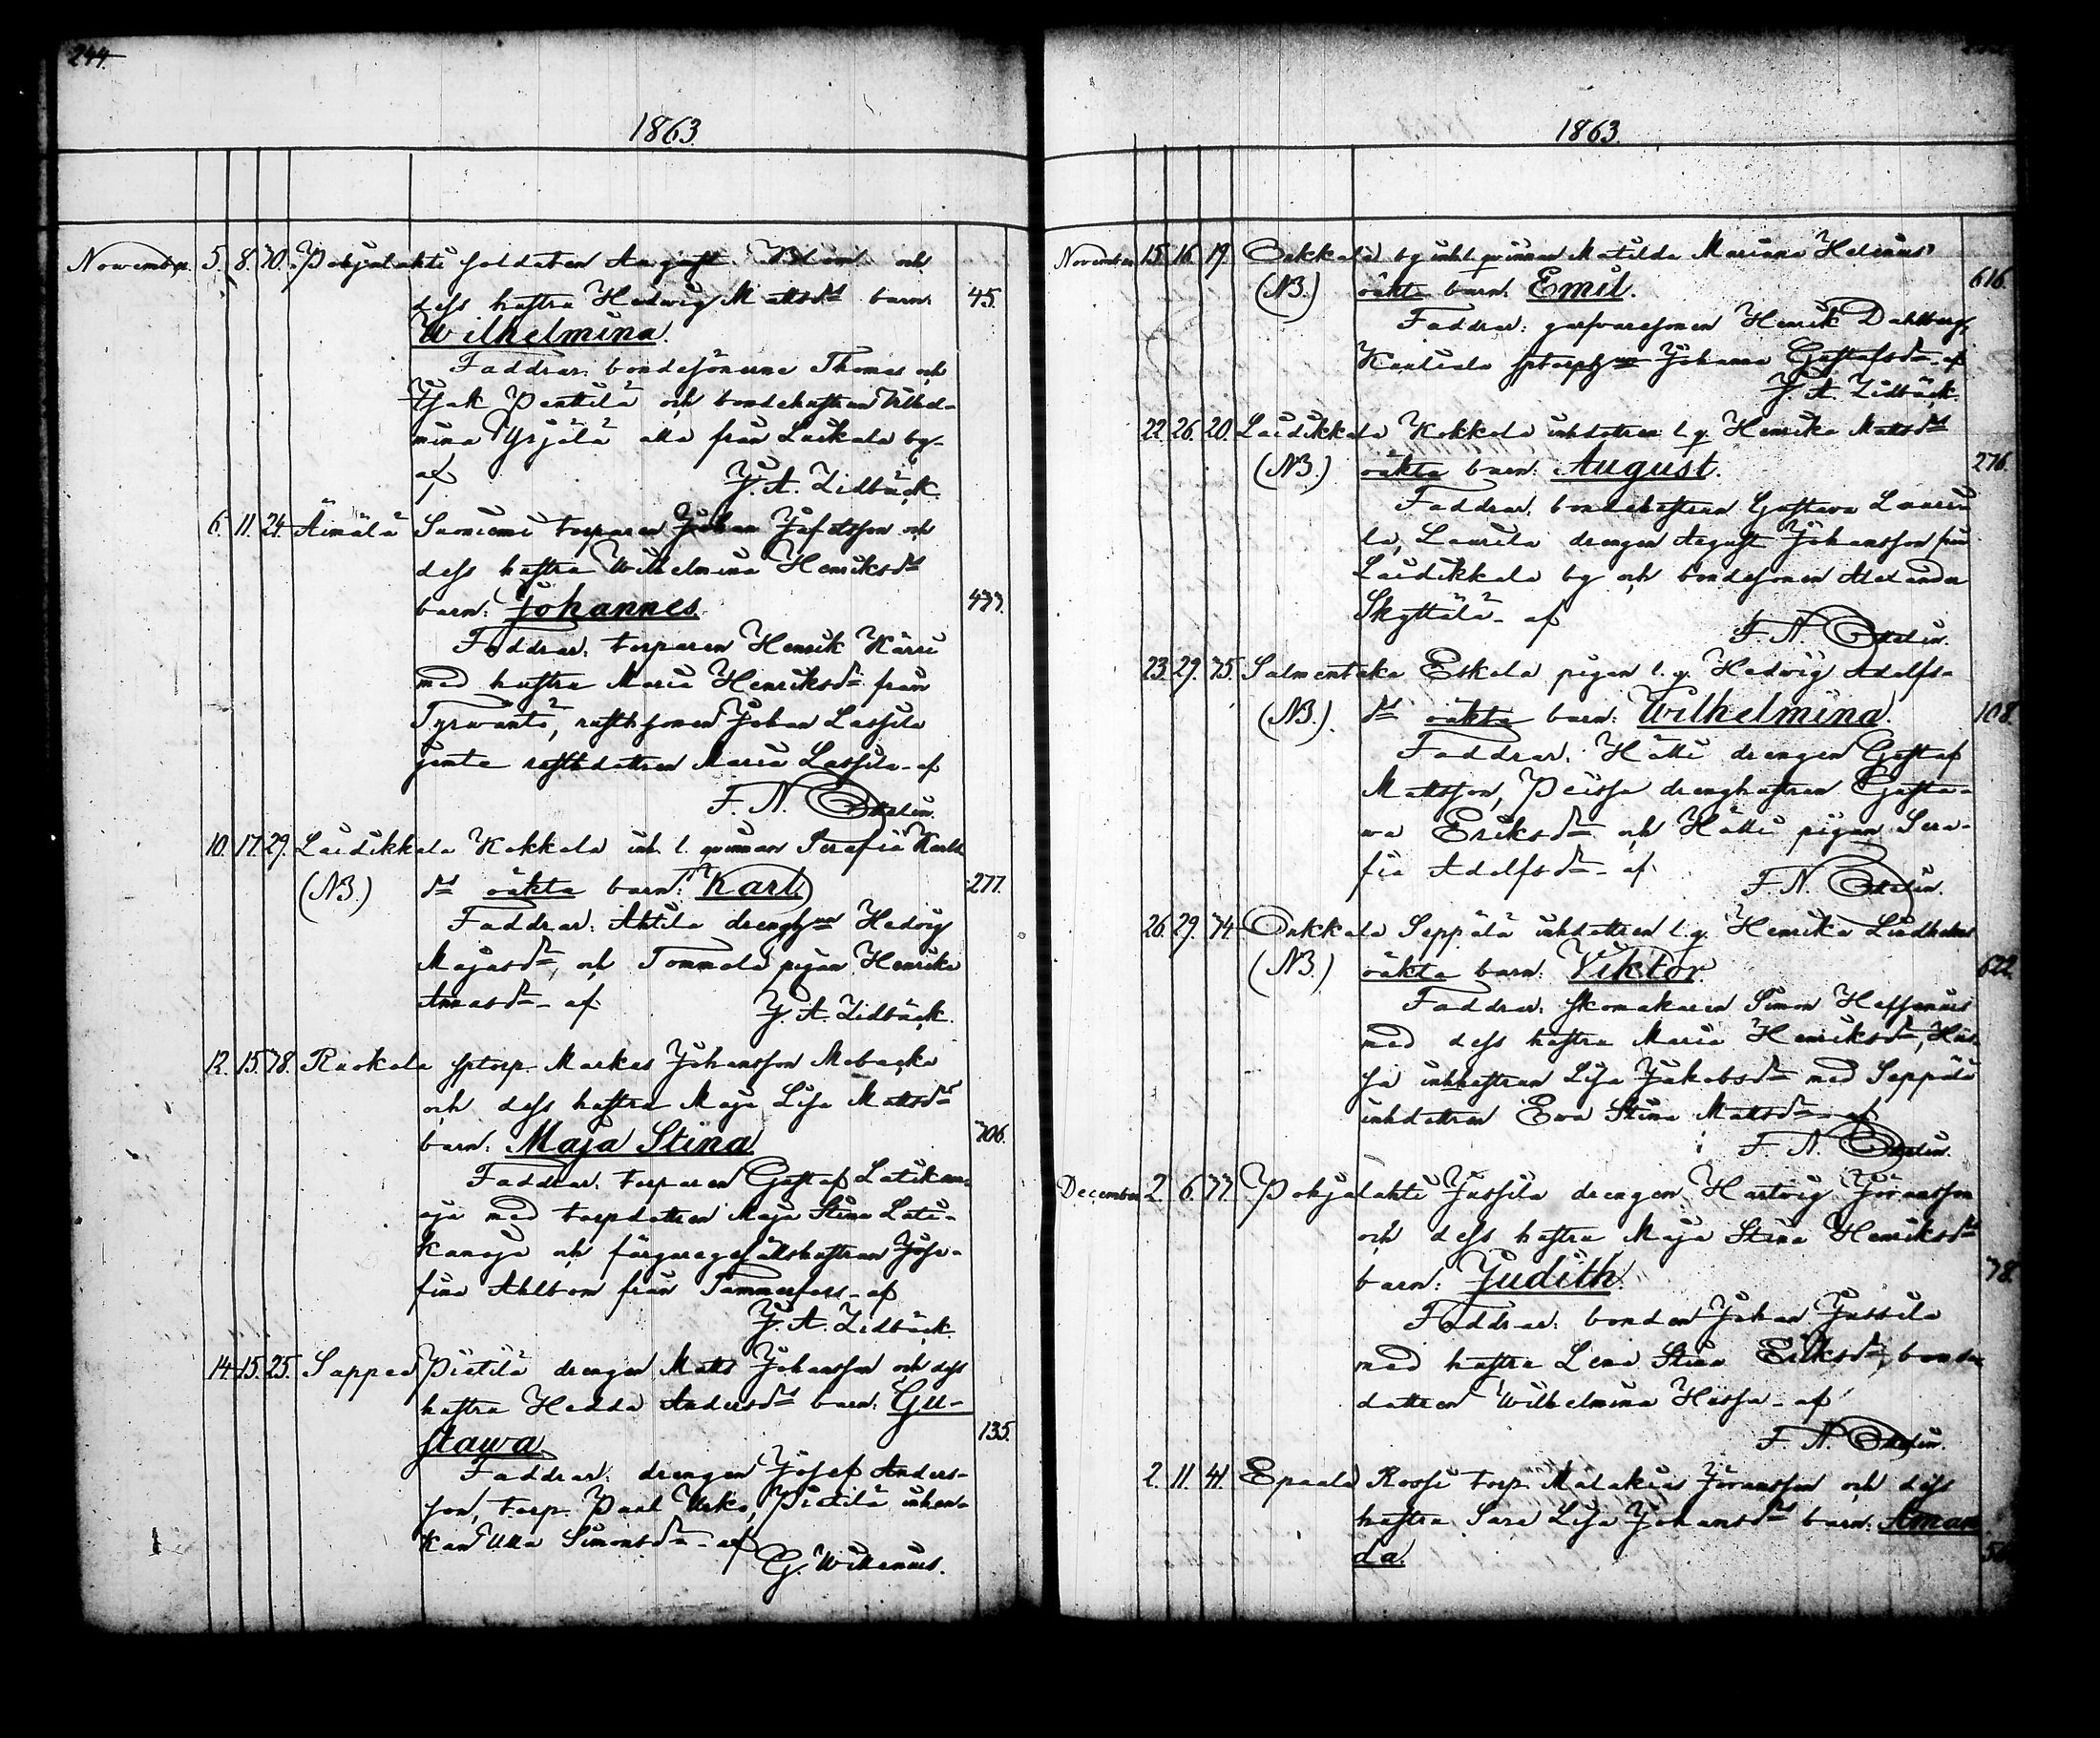 244.
1863
November 5. 8. 30. Pohjalahti soldaten August Blom och
dess hustru Hedwig Mattsdr barn: 45.
Wilhelmina.
Faddrar: bondesönerne Thomas och
Isak Penttilä och bondehustrun Vilhel-
mina Yrjälä alla från Laikala by-
af J. A. Lidbäck.
6. 11. 24. Äimälä Saoniemi torparen Johan Jafetsson och
dess hustru Wilhelmina Henriksdr
barn: Johannes. 433.
Faddrar: torparen Henrik Kärri
med hustru Maria Henriksdr från
Tyrwäntö, rusthsonen Johan Lassila
jemte rusthdottren Maria Lassila - af
F. N.
10. 17. 29. Laidikkala Kokkala inh. l. qvinnan Serafia Karls
(NB.) dr oäkta barn: Karl. 277.
Faddrar: Ahtila drenghun Hedvig
Majasdr, och Tommola pigan Henrika
Annasdr - af J. A. Lidbäck.
12. 15. 38. Raokola sptorp. Markus Johansson Mobacka
och dess hustru Maja Lisa Mattsdr
barn: Maja Stina. 306.
Faddrar: torparen Gustaf Latikan-
oja med torpdottren Maja Stina Lati-
kanoja och färgaregesällshustrun Jose-
fina Ahlbom från Tammerfors - af
J. A. Lidbäck.
14. 15. 25. Sappee Pietilä drengen Matts Johansson och dess
hustru Hedda Andersdr barn: Gu-
stawa. 135.
Faddrar: drengen Josef Anders-
son, torp. Paul Uoko, Pietilä inhen-
kan Ulla Simonsdr - af
G. Willenius.
1863.
November 15. 16. 19. Onkkala by inh l qvinnan Matilda Mariana Helenius'
(NB.) oäkta barn: Emil. 616.
Faddrar: garfvaresonen Henrik Dahlberg,
Kantiala sptorphun Johanna Gustafsdr - af
J. A. Lidbäck.
22. 26. 20. Laidikkala Kokkala inhdottren l. q. Henrika Mattsdr
(NB.) oäkta barn: August. 276.
Faddrar: bondehustrun Gustava Lauri
la, Laurila drengen August Johansson från
Laidikkala by och bondesonen Alexander
Skyttälä - af
F. N.
23. 29. 35. Salmentaka Eskola pigan l. q. Hedvig Adolfs-
(NB.) dr oäkta barn: Wilhelmina. 108.
Faddrar: Hätti drengen Gustaf
Mattsson, Peissa drenghustrun Gusta-
va Eriksdr och Hätti pigan Sera-
fia Adolfsdr - af
F. N.
26. 29. 34. Onkkala Seppälä inhdottren l. q. Henrika Lindholms
(NB.) oäkta barn: Viktor. 622.
Faddrar: skomakaren Simon Hessenius
med dess hustru Maria Henriksdr, Huis-
sa inhhustrun Lisa Jakobsdr med Seppälä
inhdottren Ewa Stina Mattsdr - af
F. N.
December 2. 6. 33. Pohjalahti Jussila drengen Hartvig Göransson
och dess hustru Maja Stina Henriksdr
barn: Judith. 38.
Faddrar: bonden Johan Jussila
med hustru Lena Stina Eriksdr, bonde
dottren Wilhelmina Hissa - af
F. N.
2. 11. 41. Epaala Rossi torp. Malakias Göransson och dess
hustru Sara Lisa Johansdr barn: Aman
da.